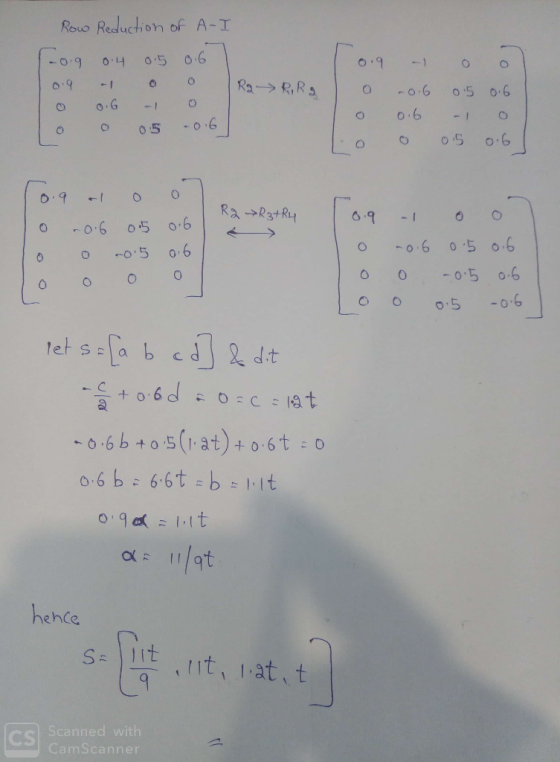 Row Reduction of A-I
[-0.9 0.4 0.5 0.6
0.9 -1 0 0
0 0.6 -1 0
0 0 0.5 -0.6]
R2→R1R2
[0.9 -1 0 0
0 -0.6 0.5 0.6
0 0.6 -1 0
0 0 0.5 0.6]
[0.9 -1 0 0
0 -0.6 0.5 0.6
0 0 -0.5 0.6
0 0 0 0]
R2→R3+R4
[0.9 -1 0 0
0 -0.6 0.5 0.6
0 0 -0.5 0.6
0 0 0.5 -0.6]
let s=[a b c d] & d.t
-c/2 + 0.6d = 0 = c = 1.2t
-0.6b + 0.5(1.2t) + 0.6t = 0
0.6b = 6.6t = b = 1.1t
0.9α = 1.1t
α = 11/9t
hence
S = [11t/9, 11t, 1.2t, t]
=
CS Scanned with
CamScanner